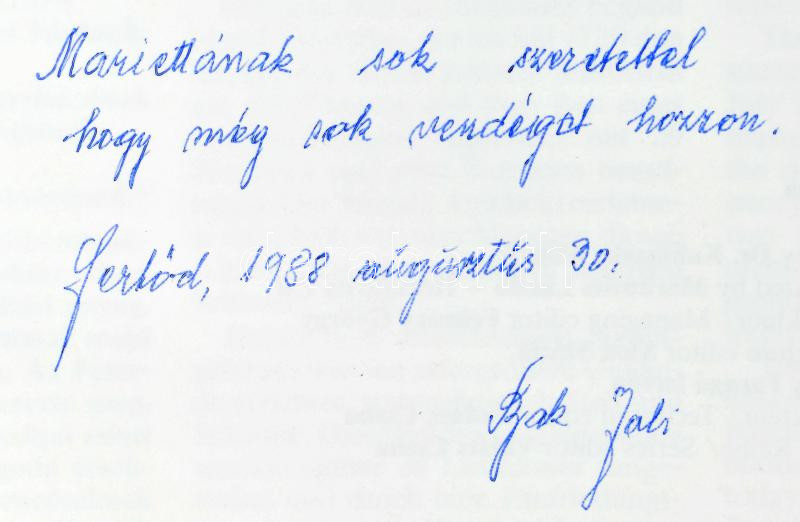 Mariettának sok szeretettel
hogy még sok vendéget hozzon.
Fertőd, 1988 augusztus 30.
Zoli